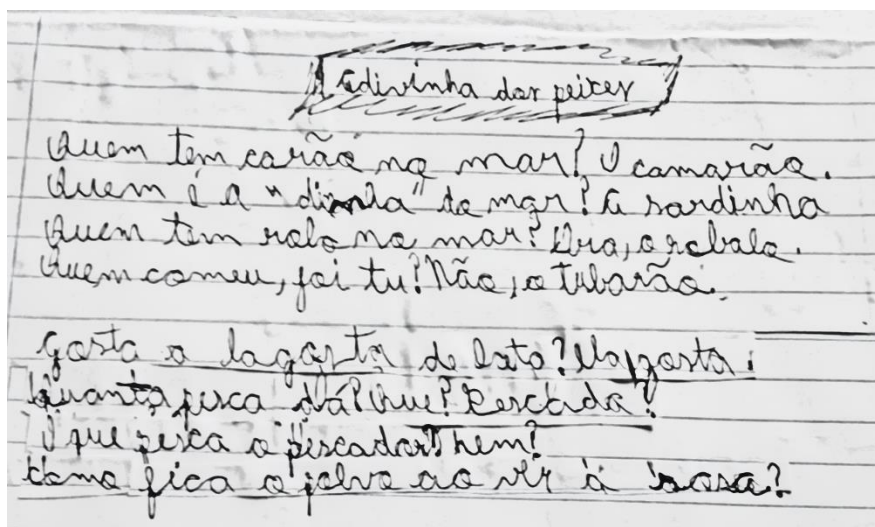 Adivinha dos peixes
Quem tem carão no mar? O camarão.
Quem é a "dinha" do mar? A sardinha
Quem tem rabo no mar? Ora, o robalo.
Quem comeu, foi tu? Não, o tubarão.
Gosta a lagosta de ? Ela gosta.
Quanta pesca dá? Que? Pescada?
O que pesca o pescador? hem?
Como fica o polvo ao vir à